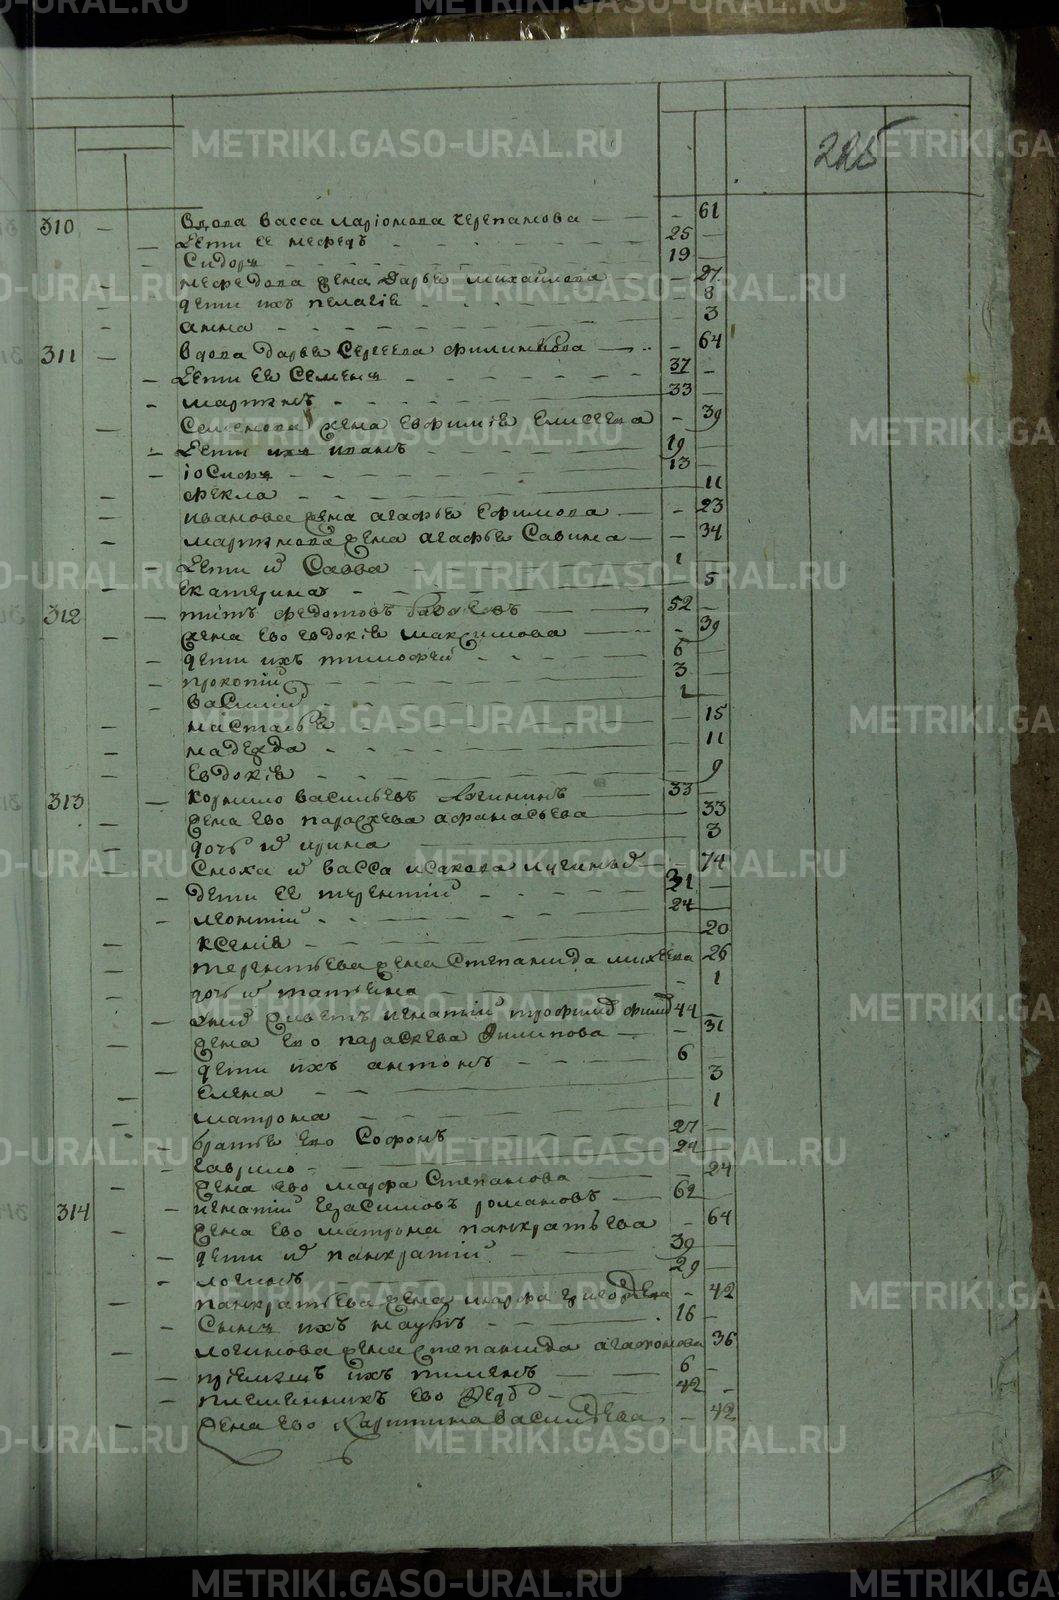 225
310 вдова васса ларiонова черепанова — 61
Дети ее мефедъ 25
Сидоръ 19
мефедова жена Дарья михайлова 27
дети ихъ пелагiя 8
анна 3
311 вдова дарья Сергеева 64
Дети ея Семенъ 37
мартинъ 33
Семенова жена евфимiя елисеева 39
Дети ихъ иванъ 19
iосифъ 13
фекла 11
ивановая жена агафья Ефимова 23
мартинова жена агафья Савина 34
Дети и Савва 1
екатерина 5
312 титъ федотовъ 52
жена ево евдокiя максимова 39
дети ихъ тимофей 6
прокопiй 3
василiй 1
настасья 15
надежда 11
евдокiя 9
313 корнило васильевъ 33
жена ево парасхева афанасьева 33
дочь и ирина 3
Сноха и васса исакова 74
дети ее терентiй 31
леонтiй 24
ксенiя 20
терентьева жена Степанида михеева 26
дочь и татьяна 1
живетъ игнатiй 44
жена ево параскева Филипова 31
дети ихъ антонъ 6
елена 3
матрона 1
братья ево Софонъ 27
гаврило 24
жена ево марфа Степанова 24
314 игнатiй герасимовъ романовъ 62
жена ево матрона панкратьева 64
дети и панкратiй 39
логинъ 29
панкратьева жена марфа григорьева 42
Сынъ ихъ наумъ 16
логинова жена Степанида агафонова 36
прiемышъ ихъ пименъ 6
племянникъ ево 42
жена ево Харитина васильева 42
METRIKI.GASO-URAL.RU